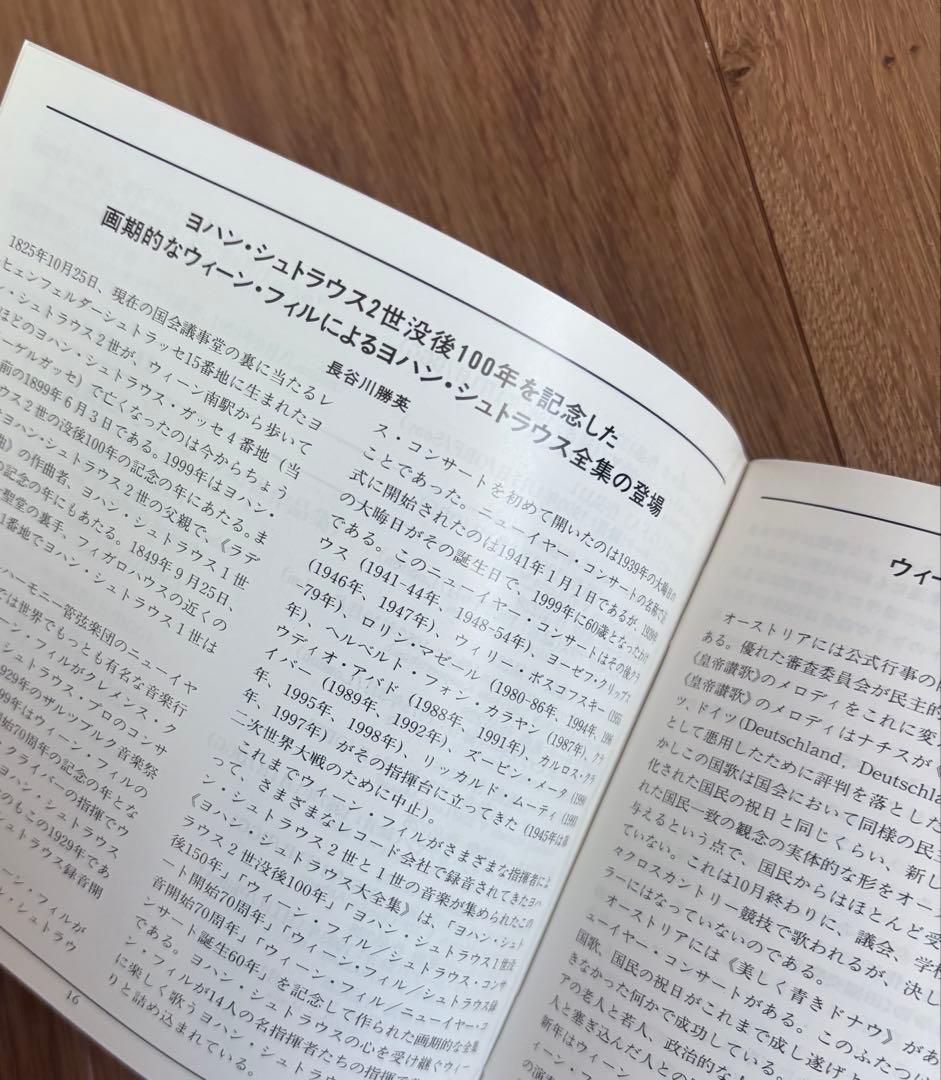 ヨハン・シュトラウス2世没後100年を記念した
画期的なウィーン・フィルによるヨハン・シュトラウス全集の登場
長谷川勝英
1825年10月25日、現在の国会議事堂の裏に当たるレ
ヒェンフェルダーシュトラッセ15番地に生まれたヨ
ン・シュトラウス2世が、ウィーン南駅から歩いて
ほどのヨハン・シュトラウス・ガッセ4番地（当
ーゲルガッセ）で亡くなったのは今からちょう
前の1899年6月3日である。1999年はヨハン・
ウス2世の没後100年の記念の年にあたる。ま
ヨハン・シュトラウス2世の父親で、《ラデ
曲》の作曲者、ヨハン・シュトラウス1世
の記念の年にもあたる。1849年9月25日
聖堂の裏手、フィガロハウスの近くの
1番地でヨハン・シュトラウス1世は
ハーモニー管弦楽団のニューイヤ
では世界でもっとも有名な音楽行
ーン・フィルがクレメンス・ク
シュトラウス・プロのコンサ
929年のザルツブルク音楽祭
99年はウィーン・フィルの
開始70周年の記念の年とな
・クライバーの指揮でウ
ヨハン・シュトラウス
たのもこの1929年であ
シュトラウス録音開
ーン・フィルが
ン・シュトラウ
ス・コンサートを初めて開いたのは1939年の大晦日の
ことであった。ニューイヤー・コンサートの名称で正
式に開始されたのは1941年1月1日であるが、1939年
の大晦日がその誕生日で、1999年に60歳となったわけ
である。このニューイヤー・コンサートはその後クラ
ウス（1941-44年、1948-54年）、ヨーゼフ・クリップス
（1946年、1947年）、ウィリー・ボスコフスキー（1955
-79年）、ロリン・マゼール（1980-86年、1994年、1996
年）、ヘルベルト・フォン・カラヤン（1987年）、クラ
ウディオ・アバド（1988年、1991年）、カルロス・クラ
イバー（1989年、1992年）、ズービン・メータ（1990
年、1995年、1998年）、リッカルド・ムーティ（1993
年、1997年）がその指揮台に立ってきた（1945年は第
二次世界大戦のために中止）。
これまでウィーン・フィルがさまざまな指揮者によ
って、さまざまなレコード会社で録音されてきたヨハ
ン・シュトラウス2世と1世の音楽が集められたこの
《ヨハン・シュトラウス大全集》は、「ヨハン・シュト
ラウス2世没後100年」「ヨハン・シュトラウス1世没
後150年」「ウィーン・フィル/シュトラウス・コンサ
ート開始70周年」「ウィーン・フィル/シュトラウス録
音開始70周年」「ウィーン・フィル/ニューイヤー・コ
ンサート誕生60年」を記念して作られた画期的な全集
である。ヨハン・シュトラウスの心を受け継ぐウィー
ン・フィルが14人の名指揮者たちの指揮で
に楽しく歌うヨハン・シュトラウ
りと詰め込まれている。
16
ウィー
オーストリアには公式行事の
ある。優れた審査委員会が民主的
《皇帝讃歌》のメロディをこれに変
《皇帝讃歌》のメロディはナチスが《
ツ、ドイツ(Deutschland, Deutschla
として悪用したために評判を落とした
かしこの国歌は国会において同様の民主
化された国民の祝日と同じくらい、新し
れた国民一致の観念の実体的な形をオー
与えるという点で、国民からはほとんど受
ていない。これは10月終わりに、議会、学校
々クロスカントリー競技で歌われるが、決し
ラーにはなっていないのである。
オーストリアには《美しく青きドナウ》
ューイヤー・コンサートがある。このふたつは
国歌、国民の祝日がこれまで成し遂げ
きなかった何かで成功している。
アの老人と若人、政治的な
人と塞ぎ込んだ人との
新年はウィーン
ィーン・フ
の演